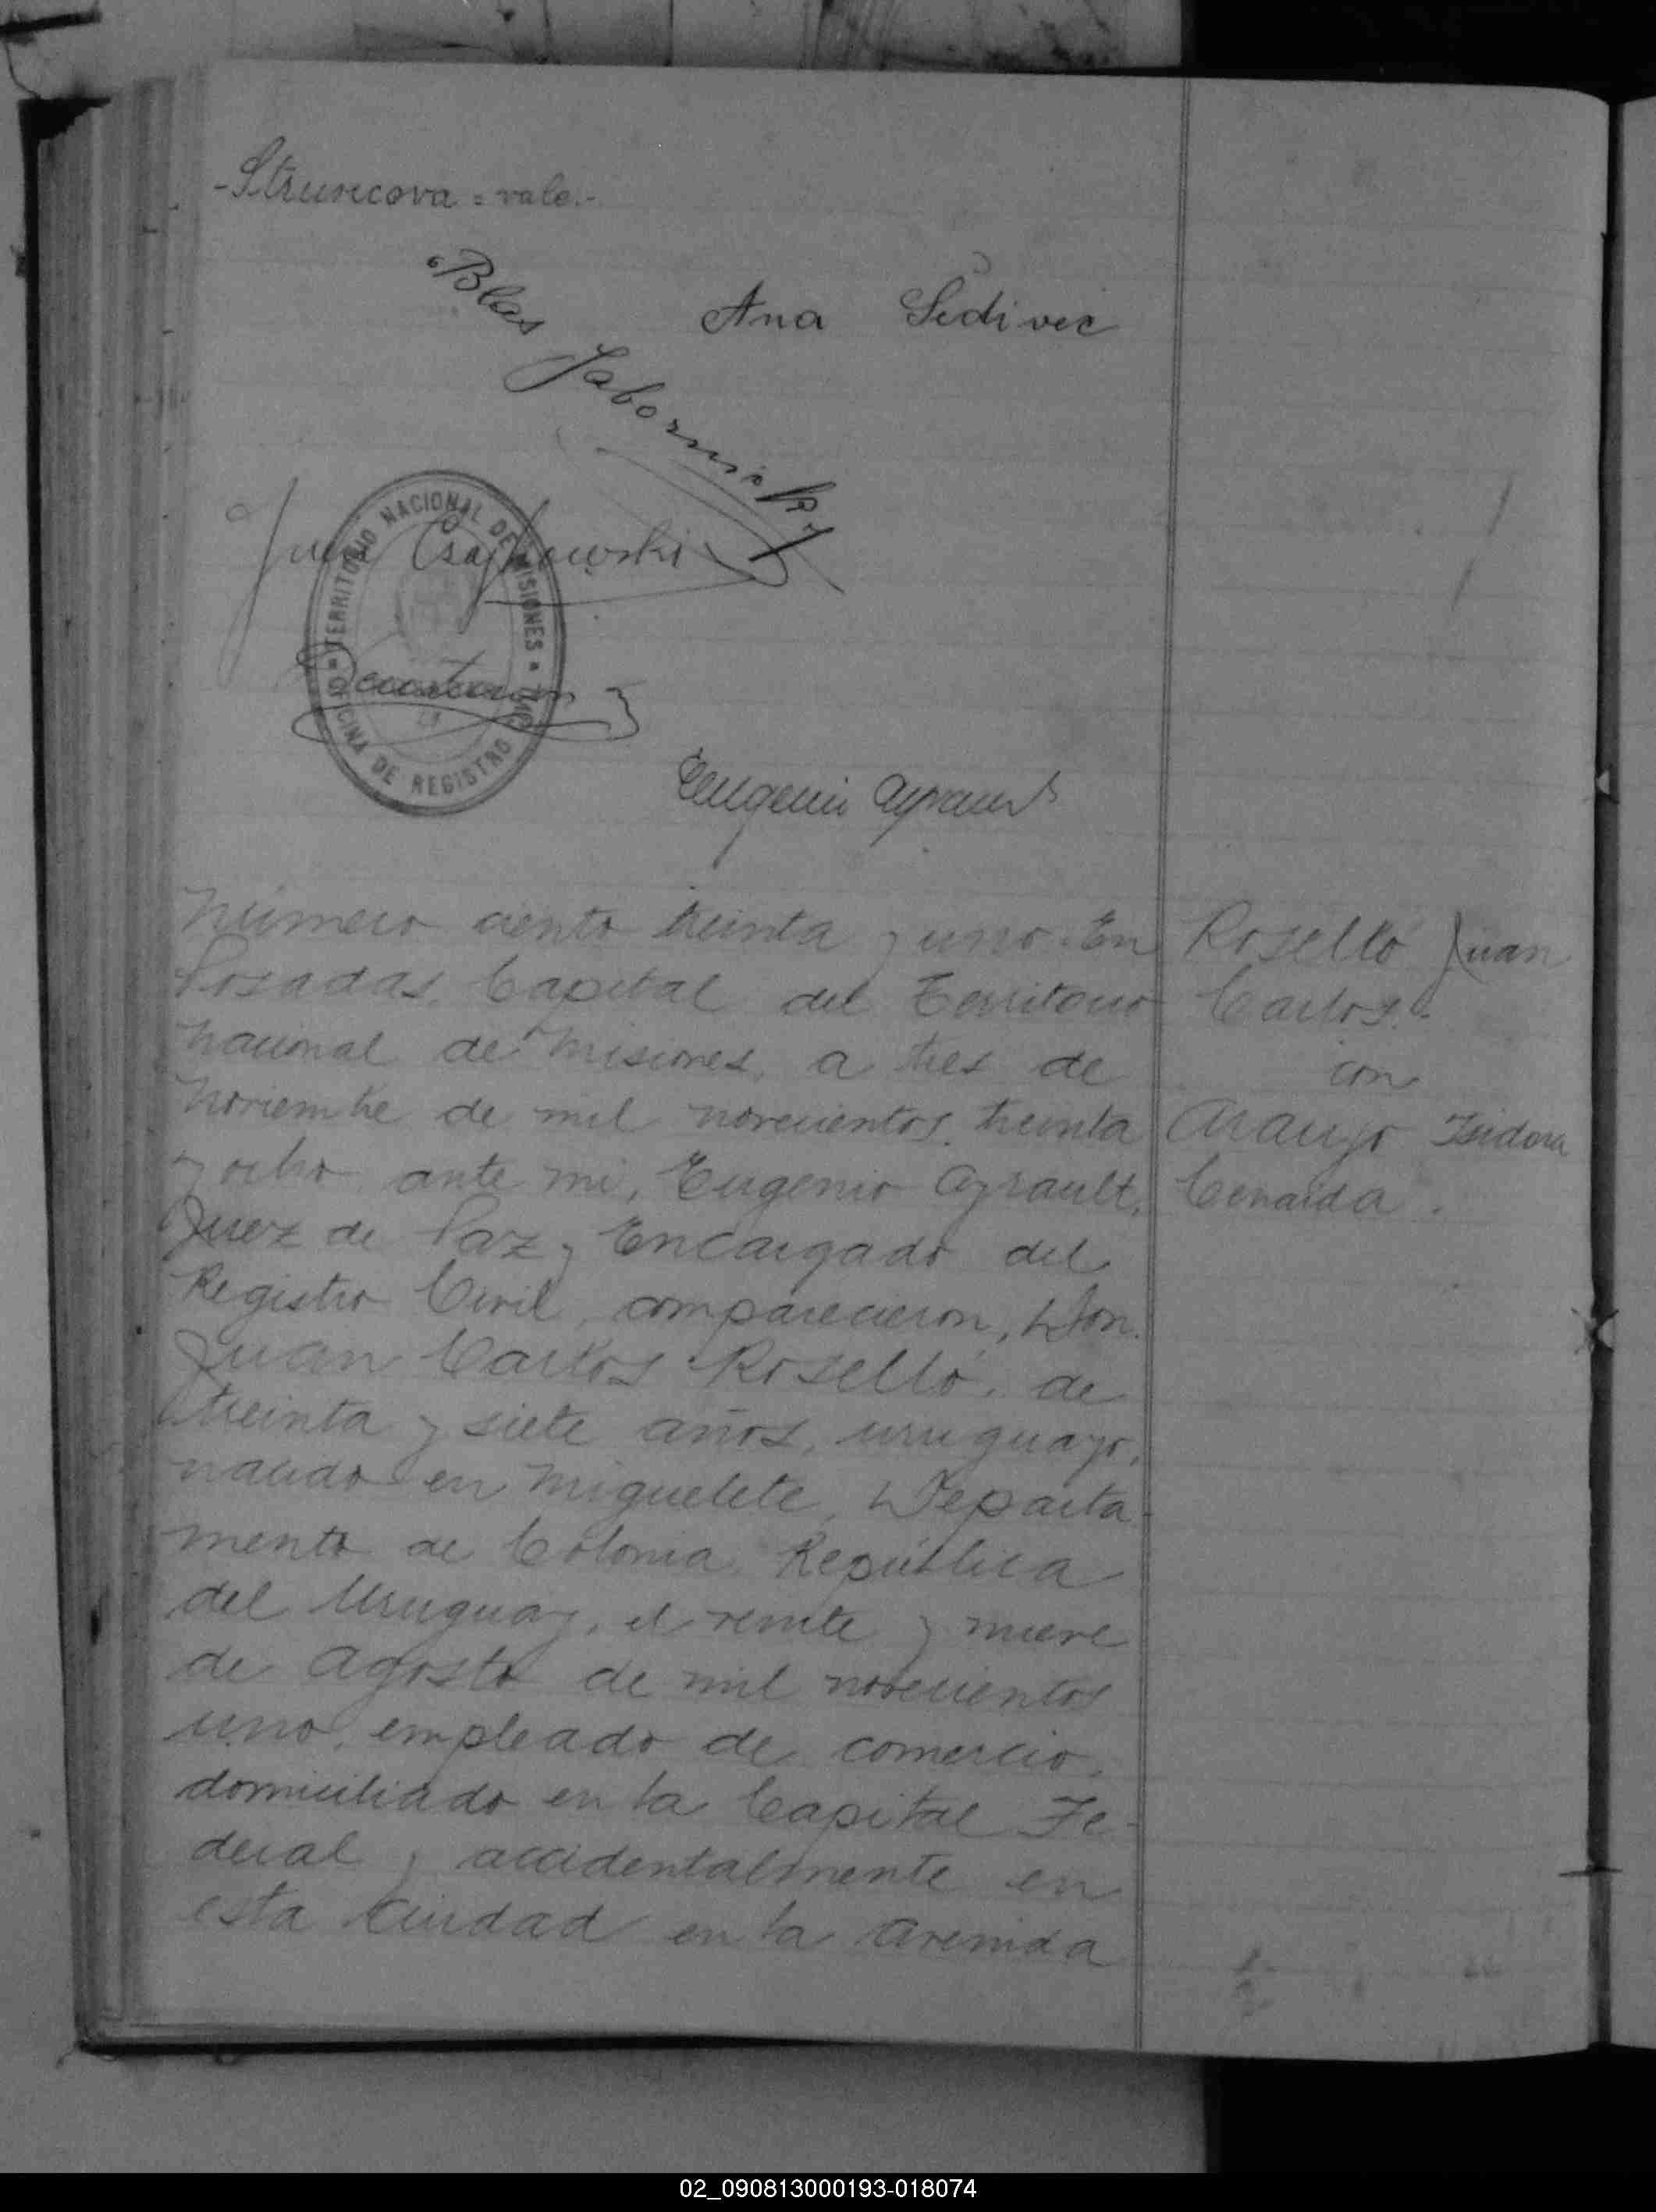 -Struncova = vale.-
Blas Jabornicky
Ana Sedivec
Juan Czajkowski
TERRITORIO NACIONAL DE MISIONES
OFICINA DE REGISTRO
Eugenio Ayrault
Número ciento treinta y uno. En
Posadas, Capital del Territorio
Nacional de Misiones, a tres de
Noviembre de mil novecientos treinta
y ocho, ante mí, Eugenio Ayrault,
Juez de Paz y Encargado del
Registro Civil, comparecieron, Don
Juan Carlos Roselló, de
treinta y siete años, uruguayo,
nacido en Miguelete, Departa-
mento de Colonia, República
del Uruguay, el veinte y nueve
de Agosto de mil novecientos
uno, empleado de comercio,
domiciliado en la Capital Fe-
deral y accidentalmente en
esta ciudad en la Avenida
Roselló Juan
Carlos.-
con
Araujo Isidora
Cenaida.
02_090813000193-018074